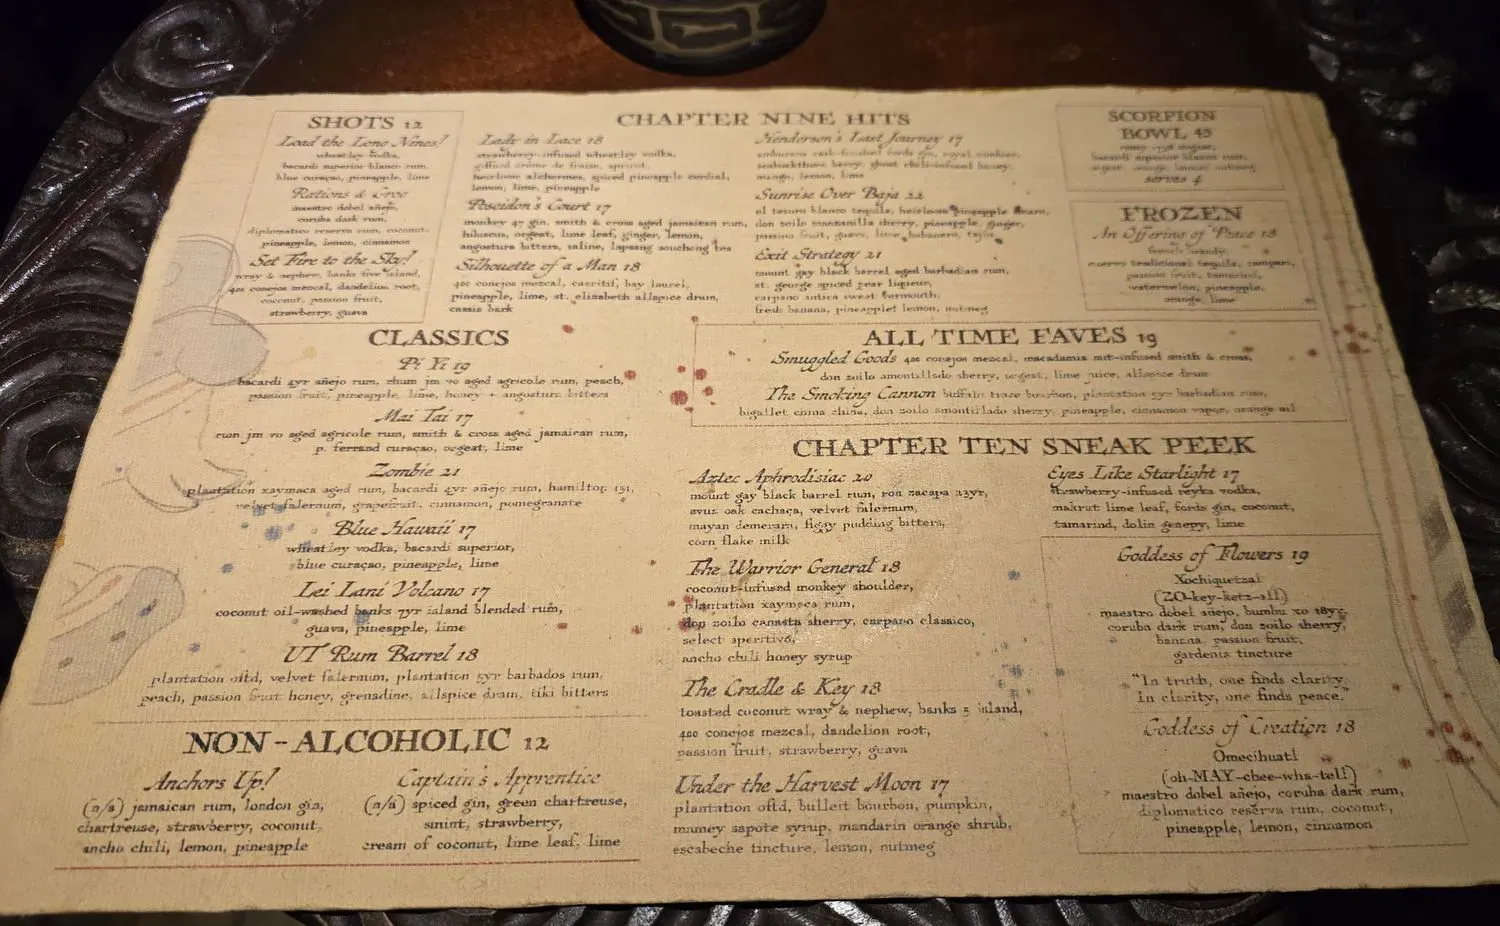 SHOTS 12
Load the Long Nines!
wheatley vodka,
bacardi superior blanco rum,
blue curaçao, pineapple, lime
Rations & Grog
maestro dobel añejo,
coruba dark rum,
diplomatico reserva rum, coconut,
pineapple, lemon, cinnamon
Set Fire to the Sky!
wray & nephew, banks five island,
400 conejos mezcal, dandelion root,
coconut, passion fruit,
strawberry, guava
CHAPTER NINE HITS
Lady in Lace 18
strawberry-infused wheatley vodka,
giffard crème de fraise, apricot,
heirloom alchermes, spiced pineapple cordial,
lemon, lime, pineapple
Poseidon's Court 17
monkey 47 gin, smith & cross aged jamaican rum,
hibiscus, orgeat, lime leaf, ginger, lemon,
angostura bitters, saline, lapsang souchong tea
Silhouette of a Man 18
400 conejos mezcal, bay laurel,
pineapple, lime, st. elizabeth allspice dram,
cassia bark
Henderson's Last Journey 17
fords gin, royal combier,
seabuckthorn berry, ghost chili-infused honey,
mango, lemon, lime
Sunrise Over Baja 22
el tesoro blanco tequila, heirloom pineapple amaro,
don zoilo manzanilla sherry, pineapple, ginger,
passion fruit, guava, lime, habanero, tajin
Exit Strategy 21
mount gay black barrel aged barbadian rum,
st. george spiced pear liqueur,
carpano antica sweet vermouth,
fresh banana, pineapple, lemon, nutmeg
SCORPION
BOWL 45
bacardi superior blanco rum,
orgeat, orange, lemon, nutmeg
serves 4
FROZEN
An Offering of Peace 18
french brandy,
cuervo tradicional tequila, campari,
passion fruit, tamarind,
watermelon, pineapple,
orange, lime
CLASSICS
Pi Yi 19
bacardi 4yr añejo rum, rhum jm vo aged agricole rum, peach,
passion fruit, pineapple, lime, honey + angostura bitters
Mai Tai 17
rum jm vo aged agricole rum, smith & cross aged jamaican rum,
p. ferrand curaçao, orgeat, lime
Zombie 21
plantation xaymaca aged rum, bacardi 4yr añejo rum, hamilton 151,
velvet falernum, grapefruit, cinnamon, pomegranate
Blue Hawaii 17
wheatley vodka, bacardi superior,
blue curaçao, pineapple, lime
Lei Lani Volcano 17
coconut oil-washed banks 7yr island blended rum,
guava, pineapple, lime
UT Rum Barrel 18
plantation oftd, velvet falernum, plantation 5yr barbados rum,
peach, passion fruit honey, grenadine, allspice dram, tiki bitters
ALL TIME FAVES 19
Smuggled Goods 400 conejos mezcal, macadamia nut-infused smith & cross,
don zoilo amontillado sherry, orgeat, lime juice, allspice dram
The Smoking Cannon buffalo trace bourbon, plantation 5yr barbadian rum,
bigallet china china, don zoilo amontillado sherry, pineapple, cinnamon vapor, orange oil
CHAPTER TEN SNEAK PEEK
Aztec Aphrodisiac 20
mount gay black barrel rum, ron zacapa 23yr,
avuá oak cachaça, velvet falernum,
mayan demerara, figgy pudding bitters,
corn flake milk
The Warrior General 18
coconut-infused monkey shoulder,
plantation xaymaca rum,
don zoilo canasta sherry, carpano classico,
select aperitivo,
ancho chili honey syrup
The Cradle & Key 18
toasted coconut wray & nephew, banks 5 island,
400 conejos mezcal, dandelion root,
passion fruit, strawberry, guava
Under the Harvest Moon 17
plantation oftd, bulleit bourbon, pumpkin,
mamey sapote syrup, mandarin orange shrub,
escabeche tincture, lemon, nutmeg
Eyes Like Starlight 17
strawberry-infused reyka vodka,
makrut lime leaf, fords gin, coconut,
tamarind, dolin genepy, lime
Goddess of Flowers 19
Xochiquetzal
(ZO-key-ketz-all)
maestro dobel añejo, bumbu xo 18yr,
coruba dark rum, don zoilo sherry,
banana, passion fruit,
gardenia tincture
"In truth, one finds clarity.
In clarity, one finds peace."
Goddess of Creation 18
Omecihuatl
(oh-MAY-chee-wha-tell)
maestro dobel añejo, coruba dark rum,
diplomatico reserva rum, coconut,
pineapple, lemon, cinnamon
NON-ALCOHOLIC 12
Anchors Up!
(n/a) jamaican rum, london gin,
chartreuse, strawberry, coconut,
ancho chili, lemon, pineapple
Captain's Apprentice
(n/a) spiced gin, green chartreuse,
smint, strawberry,
cream of coconut, lime leaf, lime